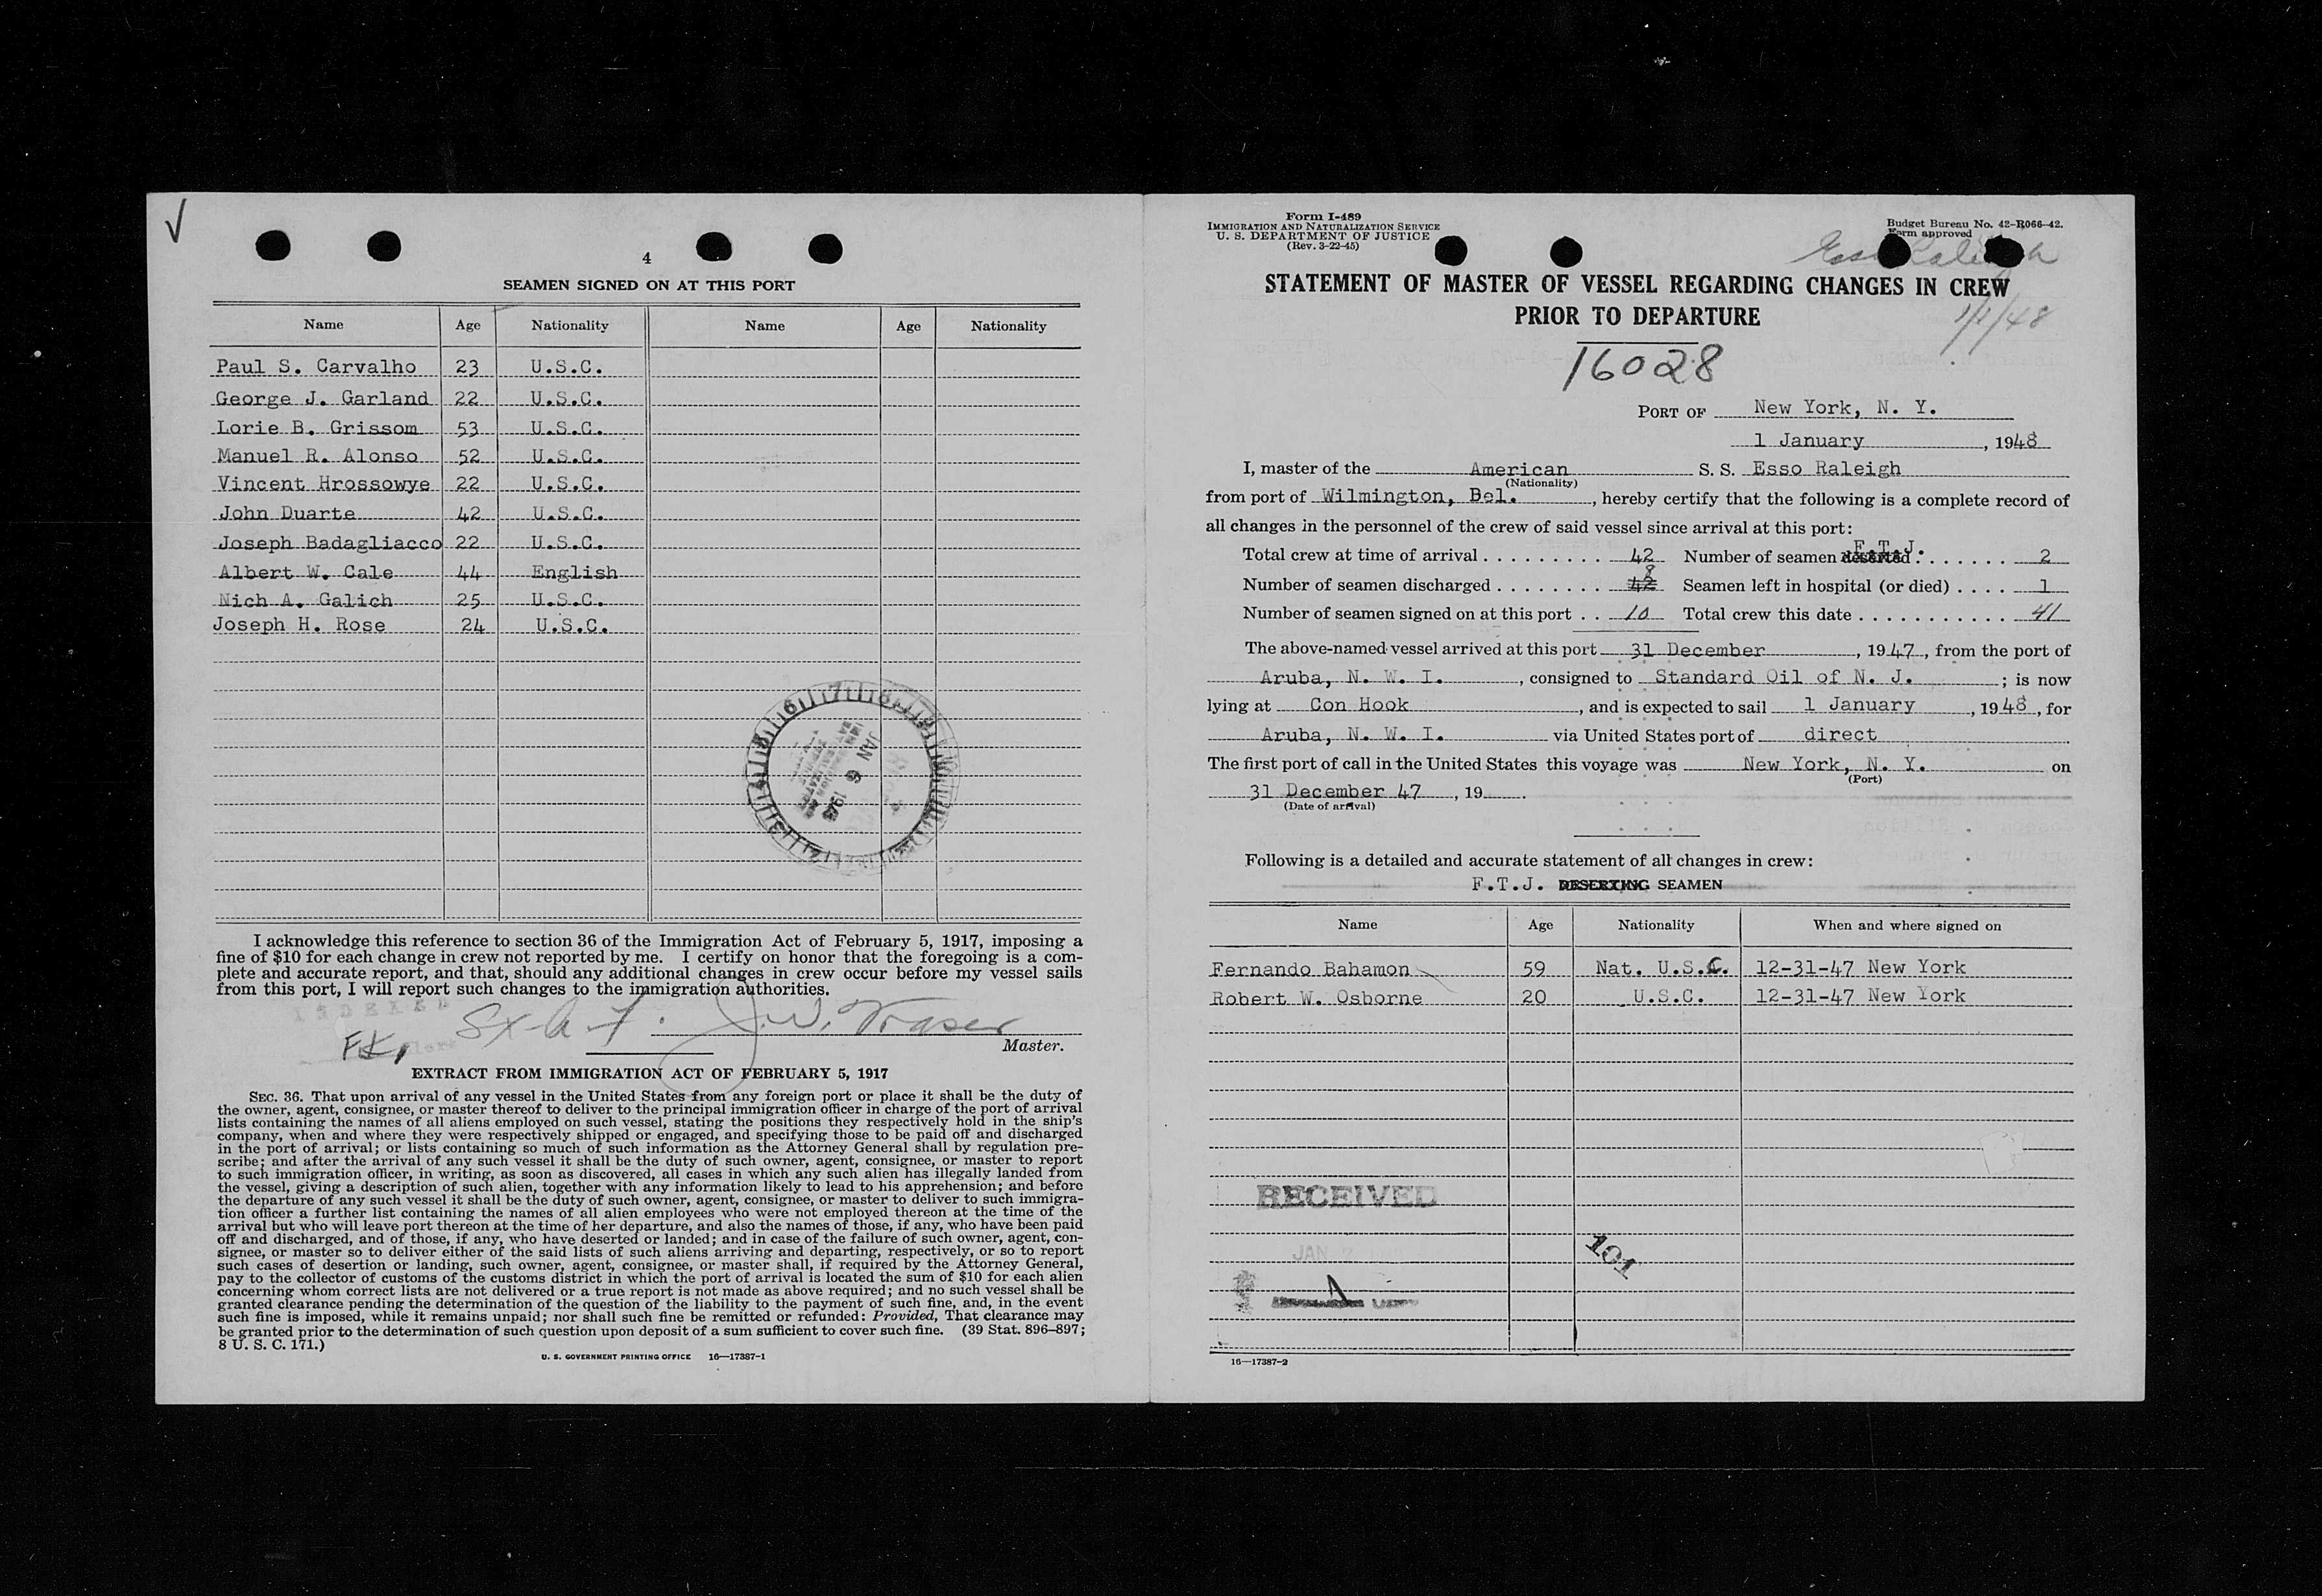 4
SEAMEN SIGNED ON AT THIS PORT
Name Age Nationality Name Age Nationality
Paul S. Carvalho 23 U.S.C.
George J. Garland 22 U.S.C.
Lorie B. Grissom 53 U.S.C.
Manuel R. Alonso 52 U.S.C.
Vincent Hrossowye 22 U.S.C.
John Duarte 42 U.S.C.
Joseph Badagliacco 22 U.S.C.
Albert W. Cale 44 English
Nich A. Galich 25 U.S.C.
Joseph H. Rose 24 U.S.C.
JAN 6 1948
I acknowledge this reference to section 36 of the Immigration Act of February 5, 1917, imposing a
fine of $10 for each change in crew not reported by me. I certify on honor that the foregoing is a com-
plete and accurate report, and that, should any additional changes in crew occur before my vessel sails
from this port, I will report such changes to the immigration authorities.
INDEXED
J. W. Fraser
Master.
EXTRACT FROM IMMIGRATION ACT OF FEBRUARY 5, 1917
SEC. 36. That upon arrival of any vessel in the United States from any foreign port or place it shall be the duty of
the owner, agent, consignee, or master thereof to deliver to the principal immigration officer in charge of the port of arrival
lists containing the names of all aliens employed on such vessel, stating the positions they respectively hold in the ship's
company, when and where they were respectively shipped or engaged, and specifying those to be paid off and discharged
in the port of arrival; or lists containing so much of such information as the Attorney General shall by regulation pre-
scribe; and after the arrival of any such vessel it shall be the duty of such owner, agent, consignee, or master to report
to such immigration officer, in writing, as soon as discovered, all cases in which any such alien has illegally landed from
the vessel, giving a description of such alien, together with any information likely to lead to his apprehension; and before
the departure of any such vessel it shall be the duty of such owner, agent, consignee, or master to deliver to such immigra-
tion officer a further list containing the names of all alien employees who were not employed thereon at the time of the
arrival but who will leave port thereon at the time of her departure, and also the names of those, if any, who have been paid
off and discharged, and of those, if any, who have deserted or landed; and in case of the failure of such owner, agent, con-
signee, or master so to deliver either of the said lists of such aliens arriving and departing, respectively, or so to report
such cases of desertion or landing, such owner, agent, consignee, or master shall, if required by the Attorney General,
pay to the collector of customs of the customs district in which the port of arrival is located the sum of $10 for each alien
concerning whom correct lists are not delivered or a true report is not made as above required; and no such vessel shall be
granted clearance pending the determination of the question of the liability to the payment of such fine, and, in the event
such fine is imposed, while it remains unpaid; nor shall such fine be remitted or refunded: Provided, That clearance may
be granted prior to the determination of such question upon deposit of a sum sufficient to cover such fine. (39 Stat. 896–897;
8 U. S. C. 171.)
U. S. GOVERNMENT PRINTING OFFICE 16—17387-1
Form I-489
IMMIGRATION AND NATURALIZATION SERVICE
U. S. DEPARTMENT OF JUSTICE
(Rev. 3-22-45)
Budget Bureau No. 42-R066-42.
Form approved
Esso Raleigh
1/1/48
STATEMENT OF MASTER OF VESSEL REGARDING CHANGES IN CREW
PRIOR TO DEPARTURE
16028
PORT OF New York, N. Y.
1 January, 1948
I, master of the American S. S. Esso Raleigh
(Nationality)
from port of Wilmington, Del., hereby certify that the following is a complete record of
all changes in the personnel of the crew of said vessel since arrival at this port:
Total crew at time of arrival 42 Number of seamen deserted F.T.J. 2
Number of seamen discharged 42 8 Seamen left in hospital (or died) 1
Number of seamen signed on at this port 10 Total crew this date 41
The above-named vessel arrived at this port 31 December, 1947, from the port of
Aruba, N. W. I., consigned to Standard Oil of N. J.; is now
lying at Con Hook, and is expected to sail 1 January, 1948, for
Aruba, N. W. I. via United States port of direct
The first port of call in the United States this voyage was New York, N. Y. on
(Port)
31 December 47, 19
(Date of arrival)
Following is a detailed and accurate statement of all changes in crew:
F.T.J. DESERTING SEAMEN
Name Age Nationality When and where signed on
Fernando Bahamon 59 Nat. U.S.C. 12-31-47 New York
Robert W. Osborne 20 U.S.C. 12-31-47 New York
RECEIVED
JAN
101
16—17387-2